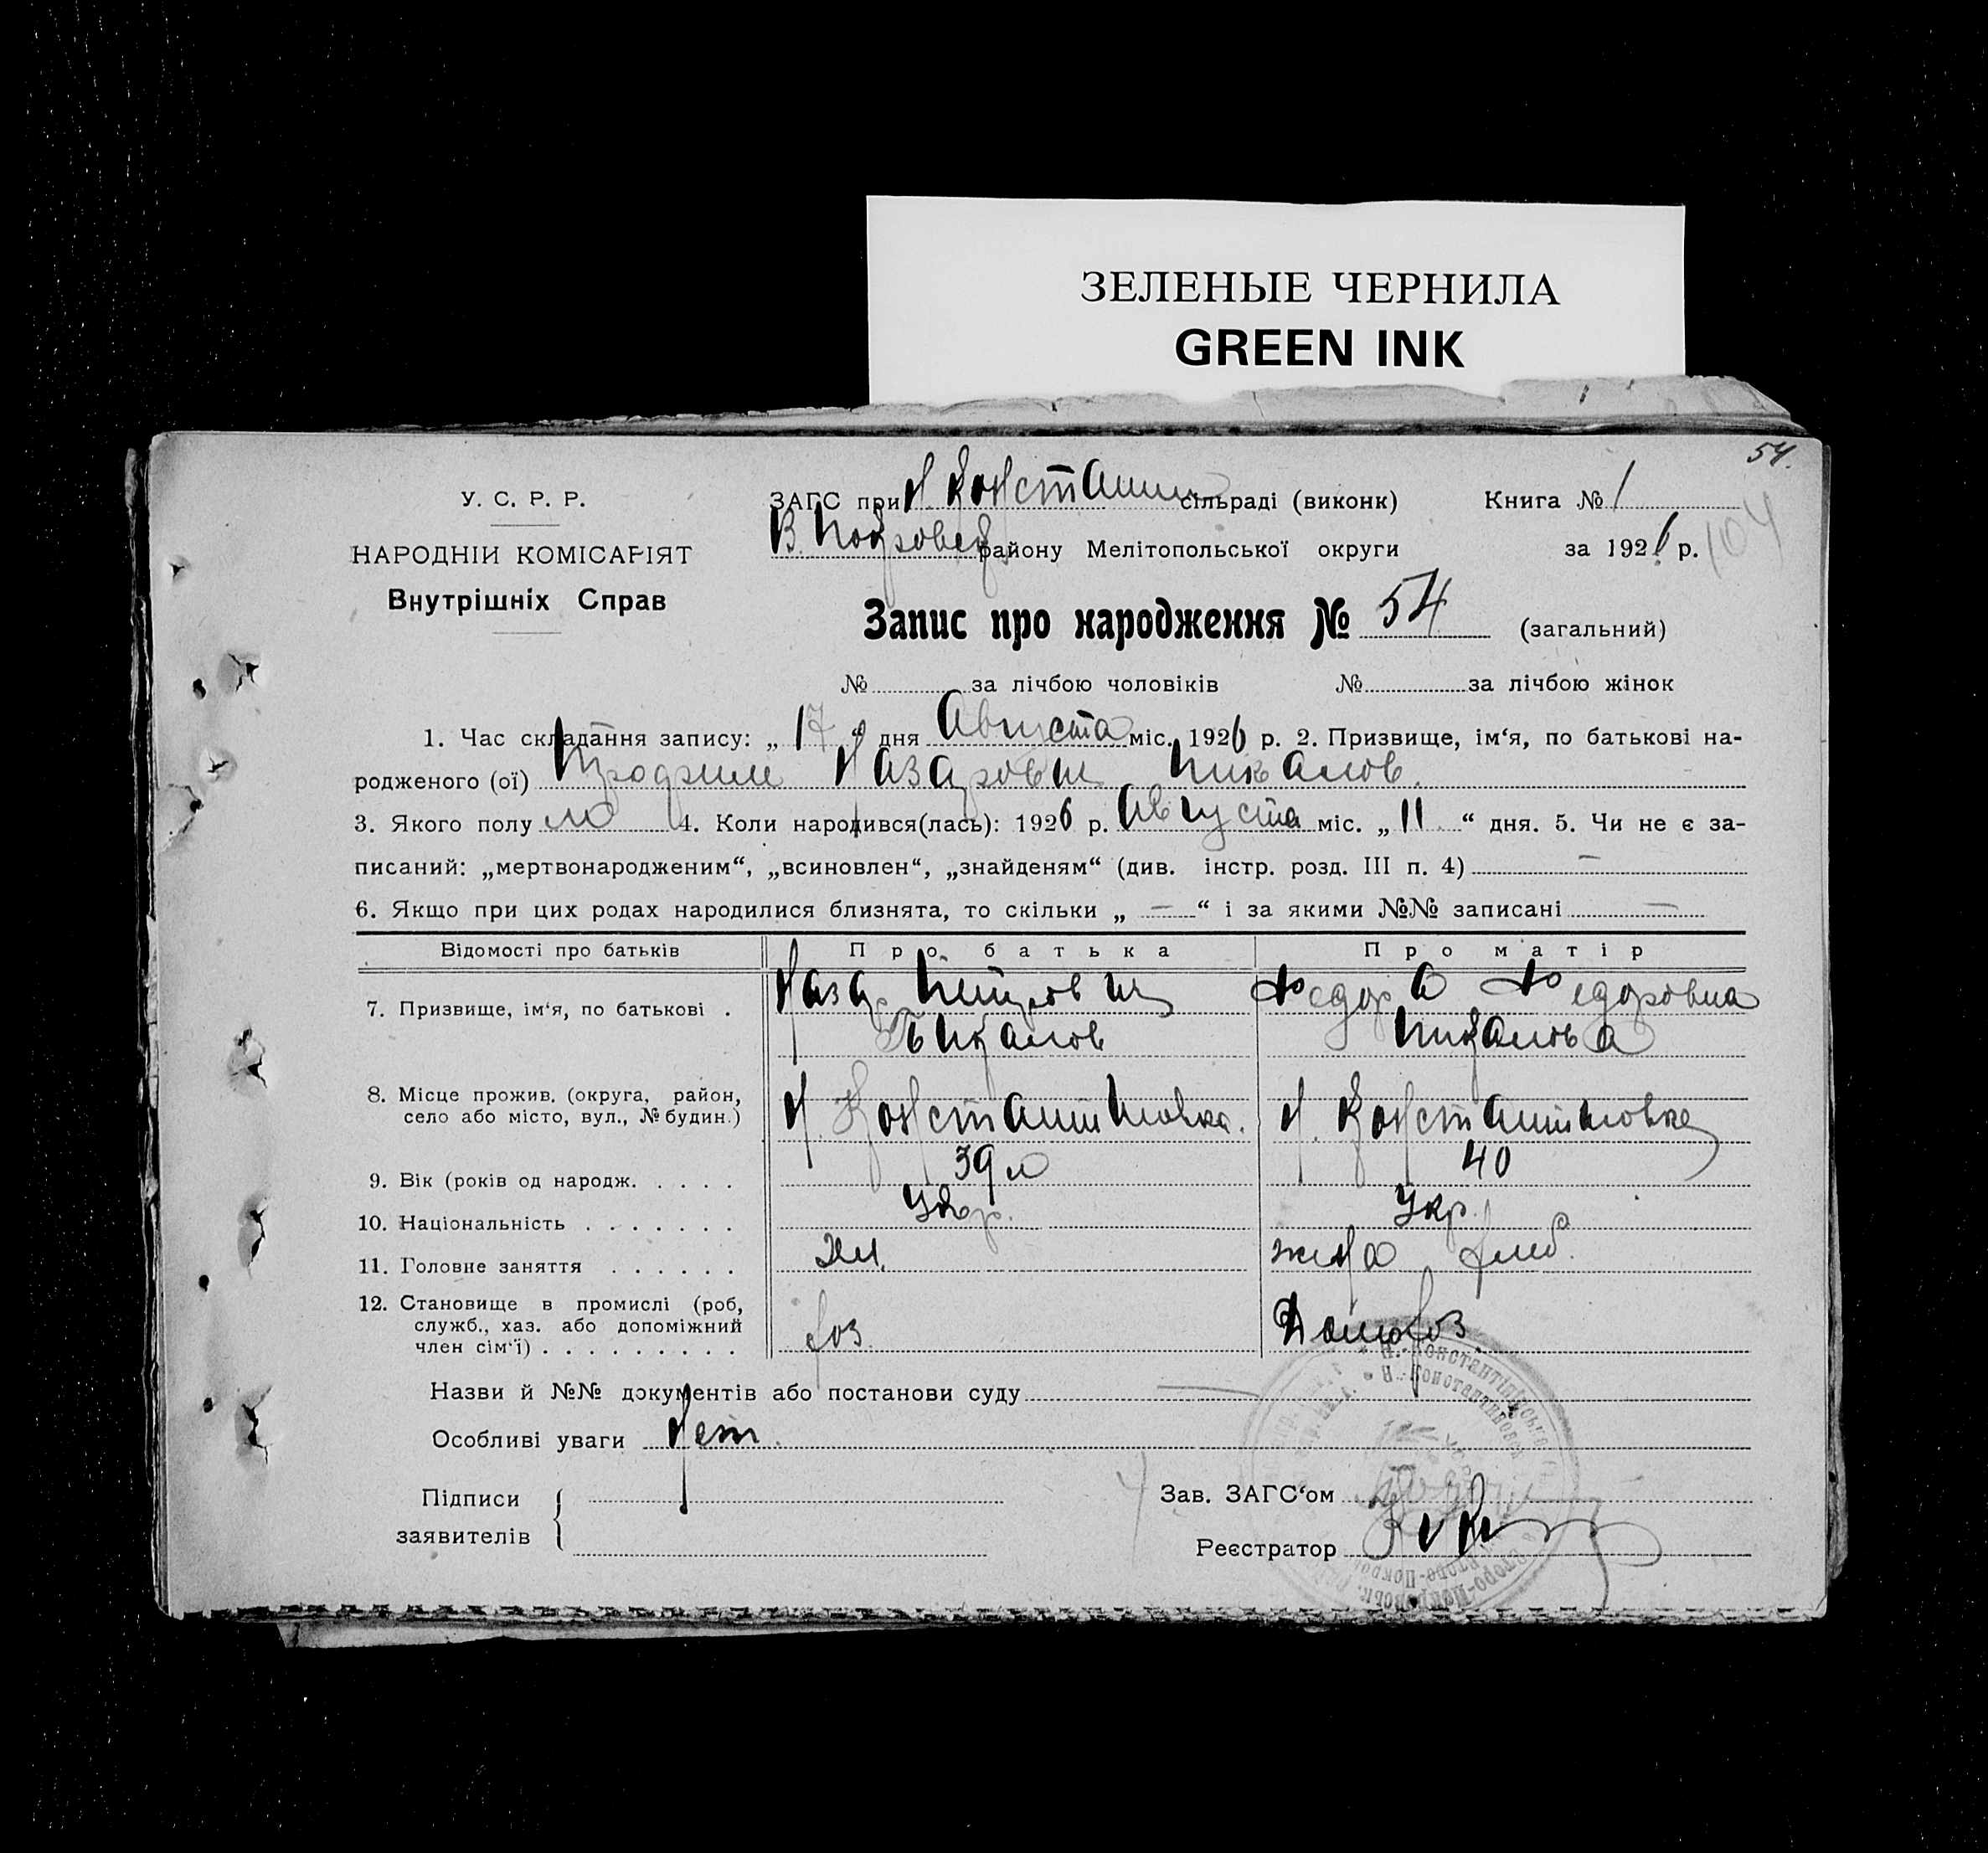 ЗЕЛЕНЫЕ ЧЕРНИЛА
GREEN INK
54.
У. С. Р. Р.
НАРОДНІЙ КОМІСАРІЯТ
Внутрішніх Справ
ЗАГС при Н. Константин сільраді (виконк) Книга № 1
В. Покровск району Мелітопольської округи за 1926 р. 104
Запис про народження № 54 (загальний)
№ за лічбою чоловіків № за лічбою жінок
1. Час складання запису: „ 17 “ дня Августа міс. 1926 р. 2. Призвище, ім‘я, по батькові на-
родженого (ої) Назарович Пикалов.
3. Якого полу м 4. Коли народився(лась): 1926 р. Августа міс. „ 11 “ дня. 5. Чи не є за-
писаний: „мертвонародженим“, „всиновлен“, „знайденям“ (див. інстр. розд. III п. 4) —
6. Якщо при цих родах народилися близнята, то скільки „ — “ і за якими №№ записані —
Відомості про батьків Про батька Про матір
7. Призвище, ім‘я, по батькові . Назар Петрович Федора Федоровна
Пикалов Пикалова
8. Місце прожив. (округа, район,
село або місто, вул., № будин.) Н. Константиновка. Н. Константиновка
9. Вік (років од народж. . . . . 39 л 40
10. Національність . . . . . . . Укр. Укр.
11. Головне заняття . . . . . . Хл. жена хлеб.
12. Становище в промислі (роб,
служб., хаз. або допоміжний
член сім‘ї) . . . . . . . . . хоз. Домохоз.
Назви й №№ документів або постанови суду
Особливі уваги Нет.
Підписи
заявителів
Зав. ЗАГС‘ом
Реєстратор